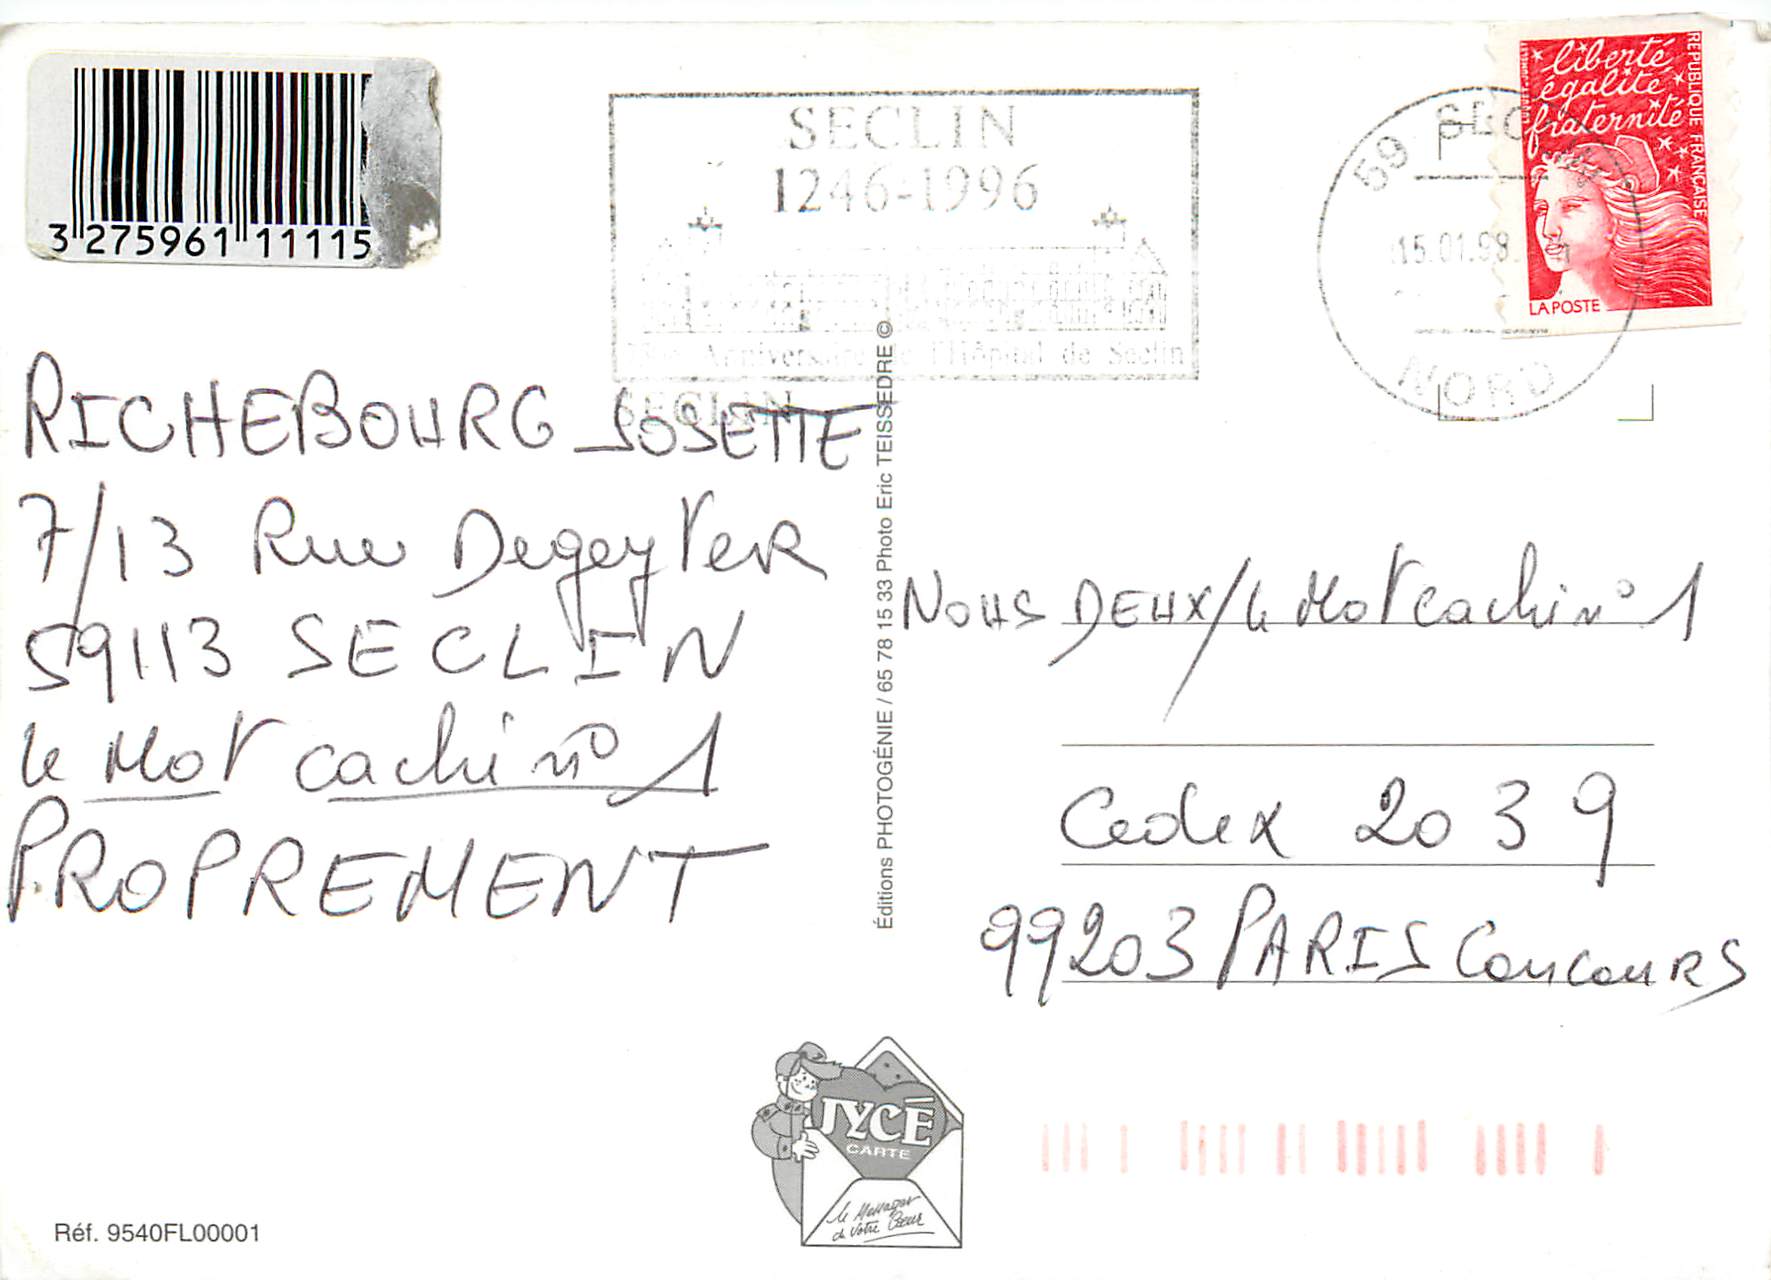 3 275961 11115
SECLIN
1246-1996
Anniversaire de l'Hôpital de Seclin
SECLIN
59 SECLIN
15.01.98
NORD
liberté
égalité
fraternité
REPUBLIQUE FRANÇAISE
LA POSTE
RICHEBOURG JOSETTE
7/13 Rue Degeyter
59113 SECLIN
le Mot caché n° 1
PROPREMENT
Éditions PHOTOGÉNIE / 65 78 15 33 Photo Eric TEISSEDRE ©
NOUS DEUX/le Mot caché n° 1
Cedex 2039
99203 PARIS Concours
JYCÉ
CARTE
le Messager
de Votre Cœur
Réf. 9540FL00001